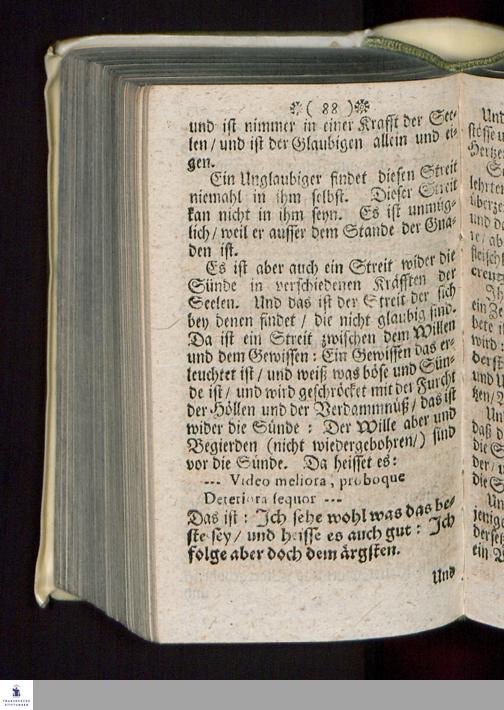 ❊( 88 )❊
und ist nimmer in einer Krafft der See-
len / und ist der Glaubigen allein und ei-
gen.
Ein Unglaubiger findet diesen Streit
niemahl in ihm selbst. Dieser Streit
kan nicht in ihm seyn. Es ist unmüg-
lich / weil er ausser dem Stande der Gna-
den ist.
Es ist aber auch ein Streit wider die
Sünde in verschiedenen Kräfften der
Seelen. Und das ist der Streit der sich
bey denen findet / die nicht glaubig sind.
Da ist ein Streit zwischen dem Willen
und dem Gewissen : Ein Gewissen das er-
leuchtet ist / und weiß was böse und Sün-
de ist / und wird geschröcket mit der Furcht
der Höllen und der Verdammnüß / das ist
wider die Sünde : Der Wille aber und
Begierden (nicht wiedergebohren /) sind
vor die Sünde. Da heisset es:
--- Video meliora, proboque
Deteriora sequor ---
Das ist : Ich sehe wohl was das be-
ste sey / und heisse es auch gut : Ich
folge aber doch dem ärgsten.
Und
FRANCKESCHE
STIFTUNGEN